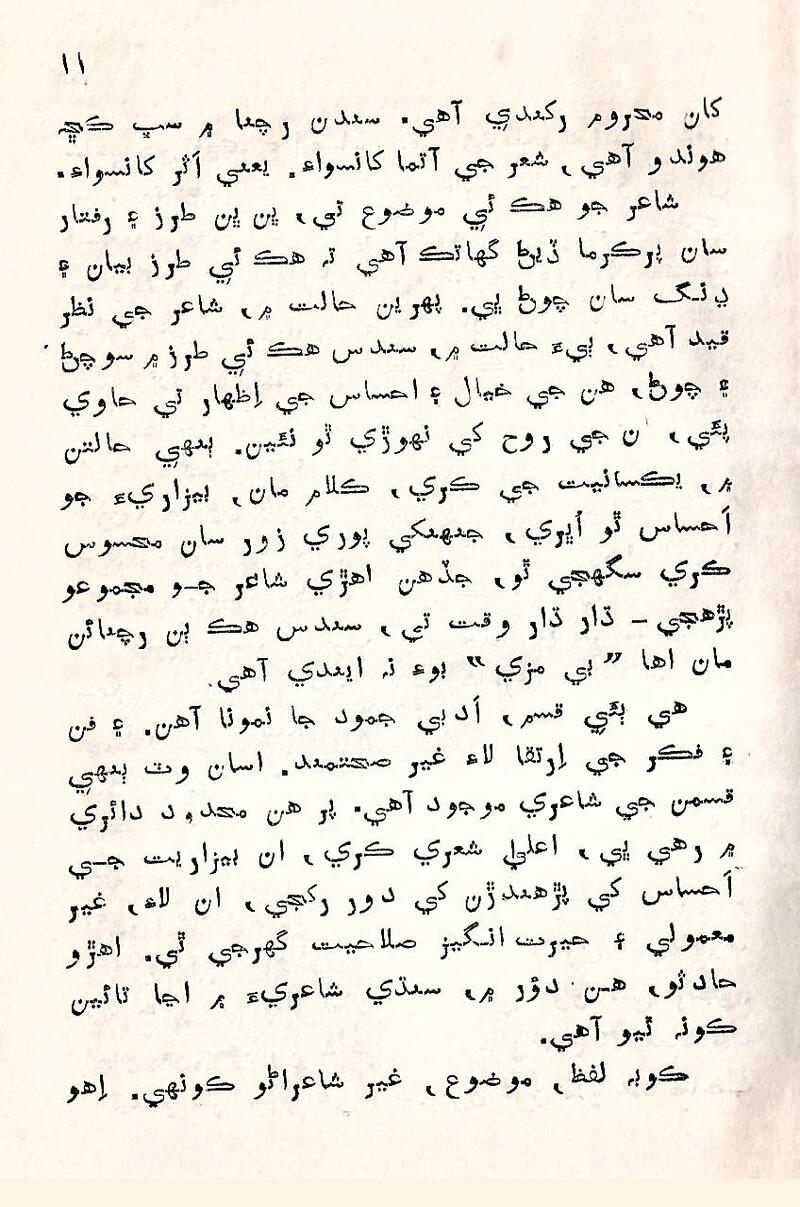 ١١
کان محروم رکندي آهي. سندن رچنا ۾ سڀ ڪڇ
هوندو آهي، شعر جي آتما کانسواء. يعني اَثر کانسواء.
شاعر جو هڪ ئي موضوع تي، ڀن ڀن طرز ۽ رفتار
سان پرڪرما ڏيڻ گهاتڪ آهي تہ هڪ ئي طرز بيان ۽
ڍنگ سان چوڻ ڀي. پهرين حالت ۾، شاعر جي نظر
قيد آهي، ٻيءَ حالت ۾، سندس هڪ ئي طرز ۾ سوچڻ
۽ چوڻ، هن جي خيال ۽ احساس جي اِظهار تي حاوي
پئي، ن جي روح کي نهوڙي ٿو نئين. ٻنهي حالتن
۾، يڪسانيت جي ڪري، ڪلام مان، بيزاريءَ جو
اَحساس ٿو اُڀري، جنهنکي پوري زور سان محسوس
ڪري سگهجي ٿو، جڏهن اهڙي شاعر جو مجموعو
پڙهجي – ڌار ڌار وقت تي، سندس هڪ ٻن رچنائن
مان اها ”بي مزي“ بوءِ نہ ايندي آهي.
هي ٻئي قسم، اَدبي جمود جا نمونا آهن. ۽ فن
۽ فڪر جي اِرتقا لاءِ غير صحتمند. اسان وٽ ٻنهي
قسمن جي شاعري موجود آهي. پر هن محدود دائري
۾ رهي ڀي، اعليٰ شعري ڪري، ان بيزاريت جي
اَحساس کي پڙهندڙن کي دور رکجي، ان لاءِ، غير
معمولي ۽ حيرت انگيز صلاحيت گهرجي ٿي. اهڙو
حادثو، هن دؤر ۾، سنڌي شاعريءَ ۾ اڃا تائين
ڪونہ ٿيو آهي.
ڪوبہ لفظ، موضوع، غير شاعراڻو ڪونهي. اِهو